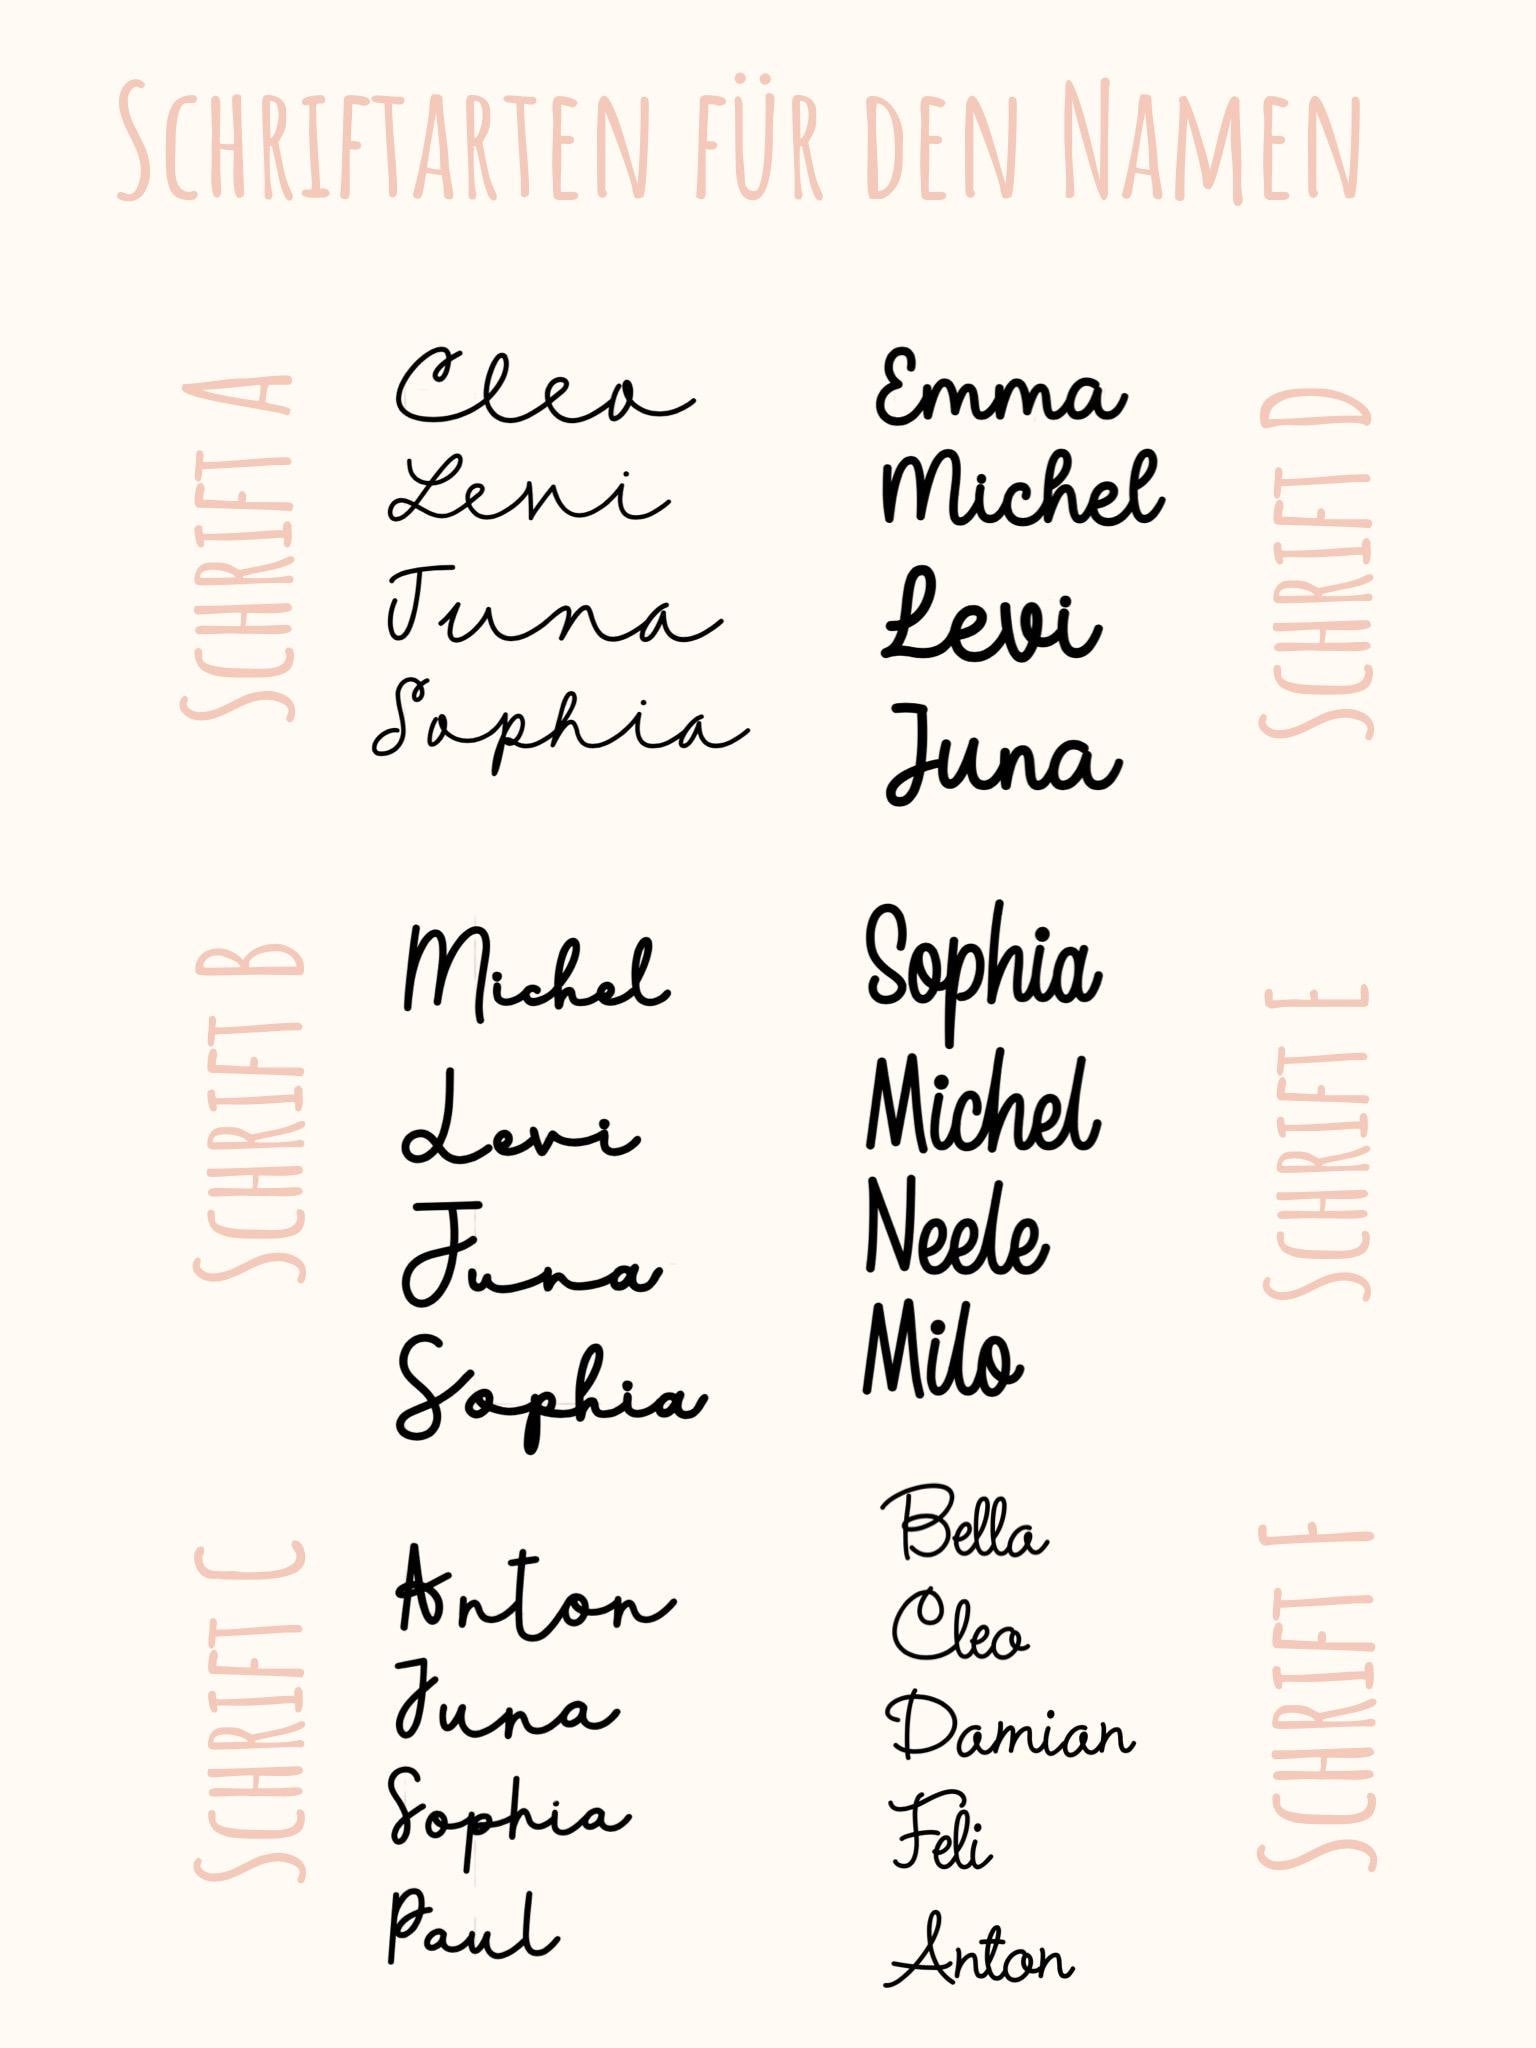 Schriftarten für den Namen
Schrift A
Cleo
Levi
Juna
Sophia
Schrift B
Michel
Levi
Juna
Sophia
Schrift C
Anton
Juna
Sophia
Paul
Schrift D
Emma
Michel
Levi
Juna
Schrift E
Sophia
Michel
Neele
Milo
Schrift F
Bella
Cleo
Damian
Feli
Anton